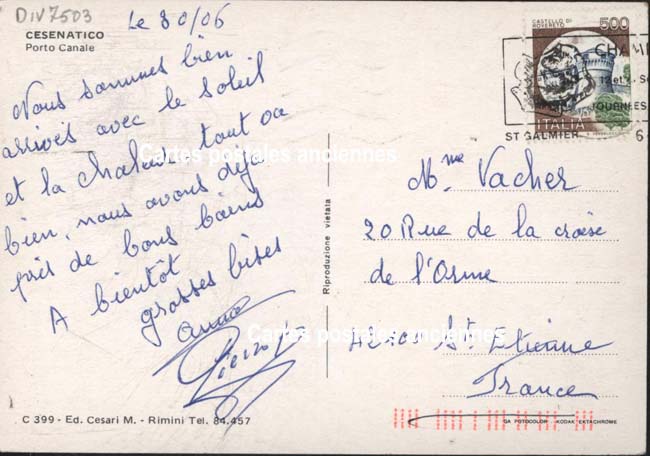 DIV7503
CESENATICO
Porto Canale
Le 30/06
Nous sommes bien
arrivés avec le soleil
et la chaleur, tout va
bien, nous avons déjà
pris de bons bains
A bientôt
grosses bises
Anna
Pierrot
C 399 - Ed. Cesari M. - Rimini Tel. 84.457
Riproduzione vietata
CASTELLO DI
ROVERETO
500
ITALIA
CHAM
12 et
JOURNEES
ST GALMIER 6
Mme Vacher
20 Rue de la croisée
de l'Orme
42100 St Etienne
France
GA FOTOCOLOR KODAK EKTACHROME
Cartes postales anciennes
Cartes postales anciennes